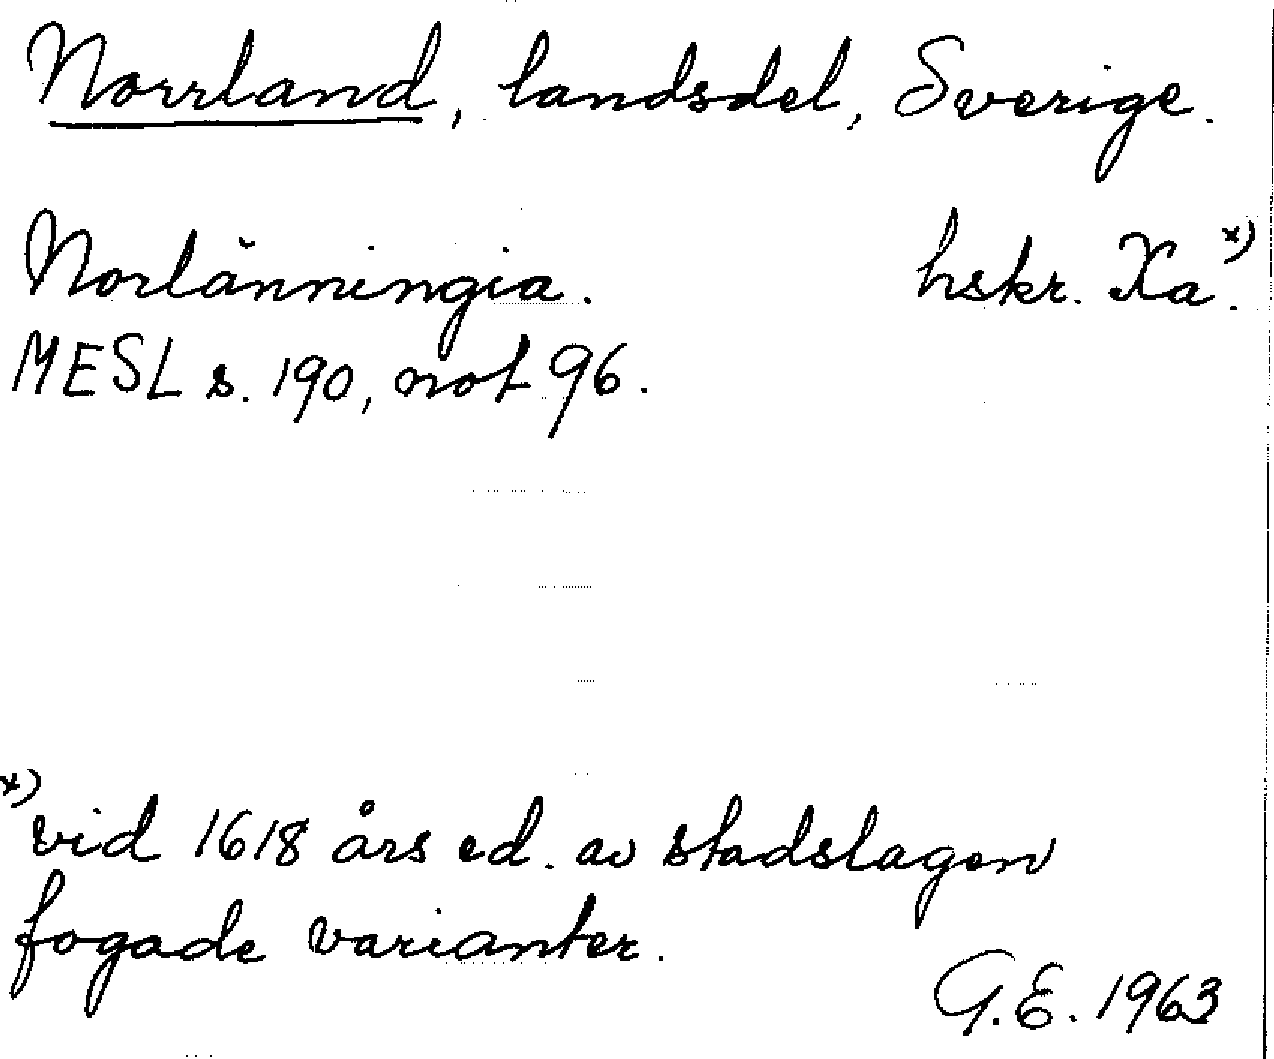 Norrland, landsdel, Sverige.
Norlänningia. hskr. Xa.ˣ⁾
MESL s. 190, not 96.
ˣ⁾ vid 1618 års ed. av stadslagen
fogade varianter.
G.E. 1963